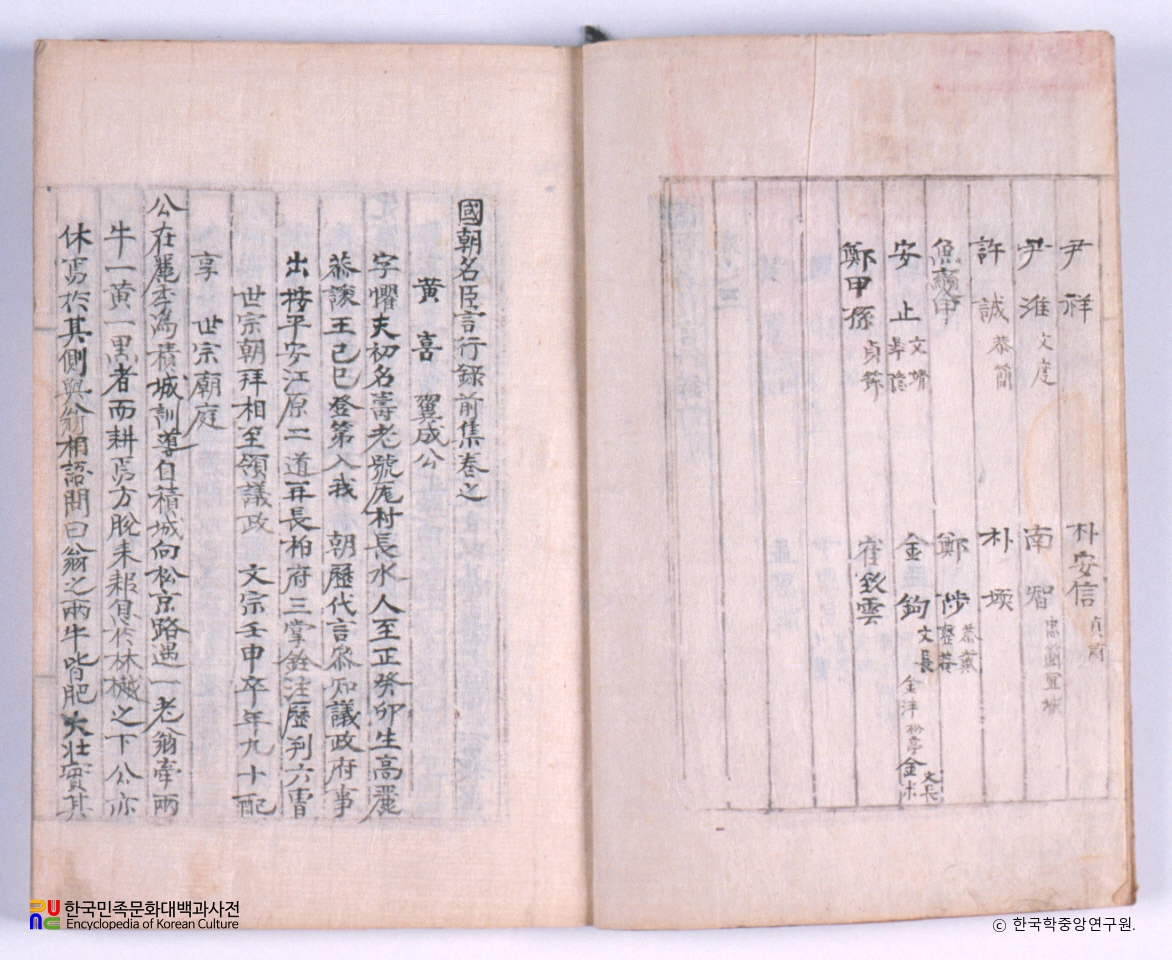 尹祥 朴安信 貞肅
尹淮 文度 南智 忠簡 宜城
許誠 恭簡 朴堧
魚變甲 鄭陟 恭戴 整菴
安止 文靖 皐隱 金鉤 文長 金泮 松亭 金末 文長
鄭甲孫 貞節 崔致雲
國朝名臣言行録前集卷之
黄喜 翼成公
字懼夫初名壽老號厖村長水人至正癸卯生高麗
恭讓王己巳登第入我 朝歷代言叅知議政府事
出按平安江原二道再長柏府三掌銓注歷判六曹
世宗朝拜相至領議政 文宗壬申卒年九十配
享 世宗廟庭
公在麗季爲積城訓導自積城向松京路遇一老翁牽兩
牛一黄一黒者而耕焉方脫耒耜息於林樾之下公亦
休焉於其側與翁相語問曰翁之兩牛皆肥大壯實其
한국민족문화대백과사전
Encyclopedia of Korean Culture
ⓒ 한국학중앙연구원.